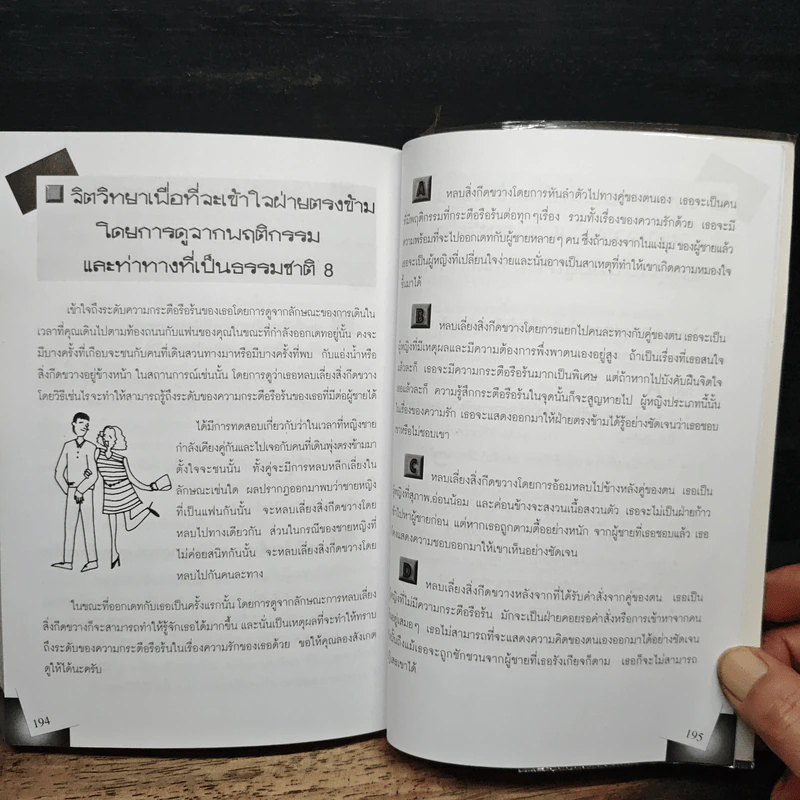 จิตวิทยาเพื่อที่จะเข้าใจฝ่ายตรงข้าม
โดยการดูจากพฤติกรรม
และท่าทางที่เป็นธรรมชาติ 8
เข้าใจถึงระดับความกระตือรือร้นของเธอโดยการดูจากลักษณะของการเดินใน
เวลาที่คุณเดินไปตามท้องถนนกับแฟนของคุณในขณะที่กำลังออกเดทอยู่นั้น คงจะ
มีบางครั้งที่เกือบจะชนกับคนที่เดินสวนทางมาหรือมีบางครั้งที่พบ กับแอ่งน้ำหรือ
สิ่งกีดขวางอยู่ข้างหน้า ในสถานการณ์เช่นนั้น โดยการดูว่าเธอหลบเลี่ยงสิ่งกีดขวาง
โดยวิธีเช่นไรจะทำให้สามารถรู้ถึงระดับของความกระตือรือร้นของเธอที่มีต่อผู้ชายได้
ได้มีการทดสอบเกี่ยวกับว่าในเวลาที่หญิงชาย
กำลังเคียงคู่กันและไปเจอกับคนที่เดินพุ่งตรงเข้ามา
ตั้งใจจะชนนั้น ทั้งคู่จะมีการหลบหลีกเลี่ยงใน
ลักษณะเช่นใด ผลปรากฎออกมาพบว่าชายหญิง
ที่เป็นแฟนกันนั้น จะหลบเลี่ยงสิ่งกีดขวางโดย
หลบไปทางเดียวกัน ส่วนในกรณีของชายหญิงที่
ไม่ค่อยสนิทกันนั้น จะหลบเลี่ยงสิ่งกีดขวางโดย
หลบไปกันคนละทาง
ในขณะที่ออกเดทกับเธอเป็นครั้งแรกนั้น โดยการดูจากลักษณะการหลบเลี่ยง
สิ่งกีดขวางก็จะสามารถทำให้รู้จักเธอได้มากขึ้น และนั่นเป็นเหตุผลที่จะทำให้ทราบ
ถึงระดับของความกระตือรือร้นในเรื่องความรักของเธอด้วย ขอให้คุณลองสังเกต
ดูให้ได้นะครับ
194
A หลบสิ่งกีดขวางโดยการหันลำตัวไปทางคู่ของตนเอง เธอจะเป็นคน
ที่มีพฤติกรรมที่กระตือรือร้นต่อทุกๆเรื่อง รวมทั้งเรื่องของความรักด้วย เธอจะมี
ความพร้อมที่จะไปออกเดทกับผู้ชายหลายๆ คน ซึ่งถ้ามองจากในแง่มุม ของผู้ชายแล้ว
เธอจะเป็นผู้หญิงที่เปลี่ยนใจง่ายและนั่นอาจเป็นสาเหตุที่ทำให้เขาเกิดความหมองใจ
ขึ้นมาได้
B หลบเลี่ยงสิ่งกีดขวางโดยการแยกไปคนละทางกับคู่ของตน เธอจะเป็น
ผู้หญิงที่มีเหตุผลและมีความต้องการพึ่งพาตนเองอยู่สูง ถ้าเป็นเรื่องที่เธอสนใจ
แล้วละก็ เธอจะมีความกระตือรือร้นมากเป็นพิเศษ แต่ถ้าหากไปบังคับฝืนจิตใจ
เธอแล้วละก็ ความรู้สึกกระตือรือร้นในจุดนั้นก็จะสูญหายไป ผู้หญิงประเภทนี้นั้น
ในเรื่องของความรัก เธอจะแสดงออกมาให้ฝ่ายตรงข้ามได้รู้อย่างชัดเจนว่าเธอชอบ
เขาหรือไม่ชอบเขา
C หลบเลี่ยงสิ่งกีดขวางโดยการอ้อมหลบไปข้างหลังคู่ของตน เธอเป็น
ผู้หญิงที่สุภาพ.อ่อนน้อม และค่อนข้างจะสงวนเนื้อสงวนตัว เธอจะไม่เป็นฝ่ายก้าว
เข้าไปหาผู้ชายก่อน แต่หากเธอถูกตามตื้ออย่างหนัก จากผู้ชายที่เธอชอบแล้ว เธอ
จะแสดงความชอบออกมาให้เขาเห็นอย่างชัดเจน
D หลบเลี่ยงสิ่งกีดขวางหลังจากที่ได้รับคำสั่งจากคู่ของตน เธอเป็น
ผู้หญิงที่ไม่มีความกระตือรือร้น มักจะเป็นฝ่ายคอยรอคำสั่งหรือการเข้าหาจากคน
อื่นอยู่เสมอๆ เธอไม่สามารถที่จะแสดงความคิดของตนเองออกมาได้อย่างชัดเจน
ถึงแม้เธอจะถูกชักชวนจากผู้ชายที่เธอรังเกียจก็ตาม เธอก็จะไม่สามารถ
เขาได้
195